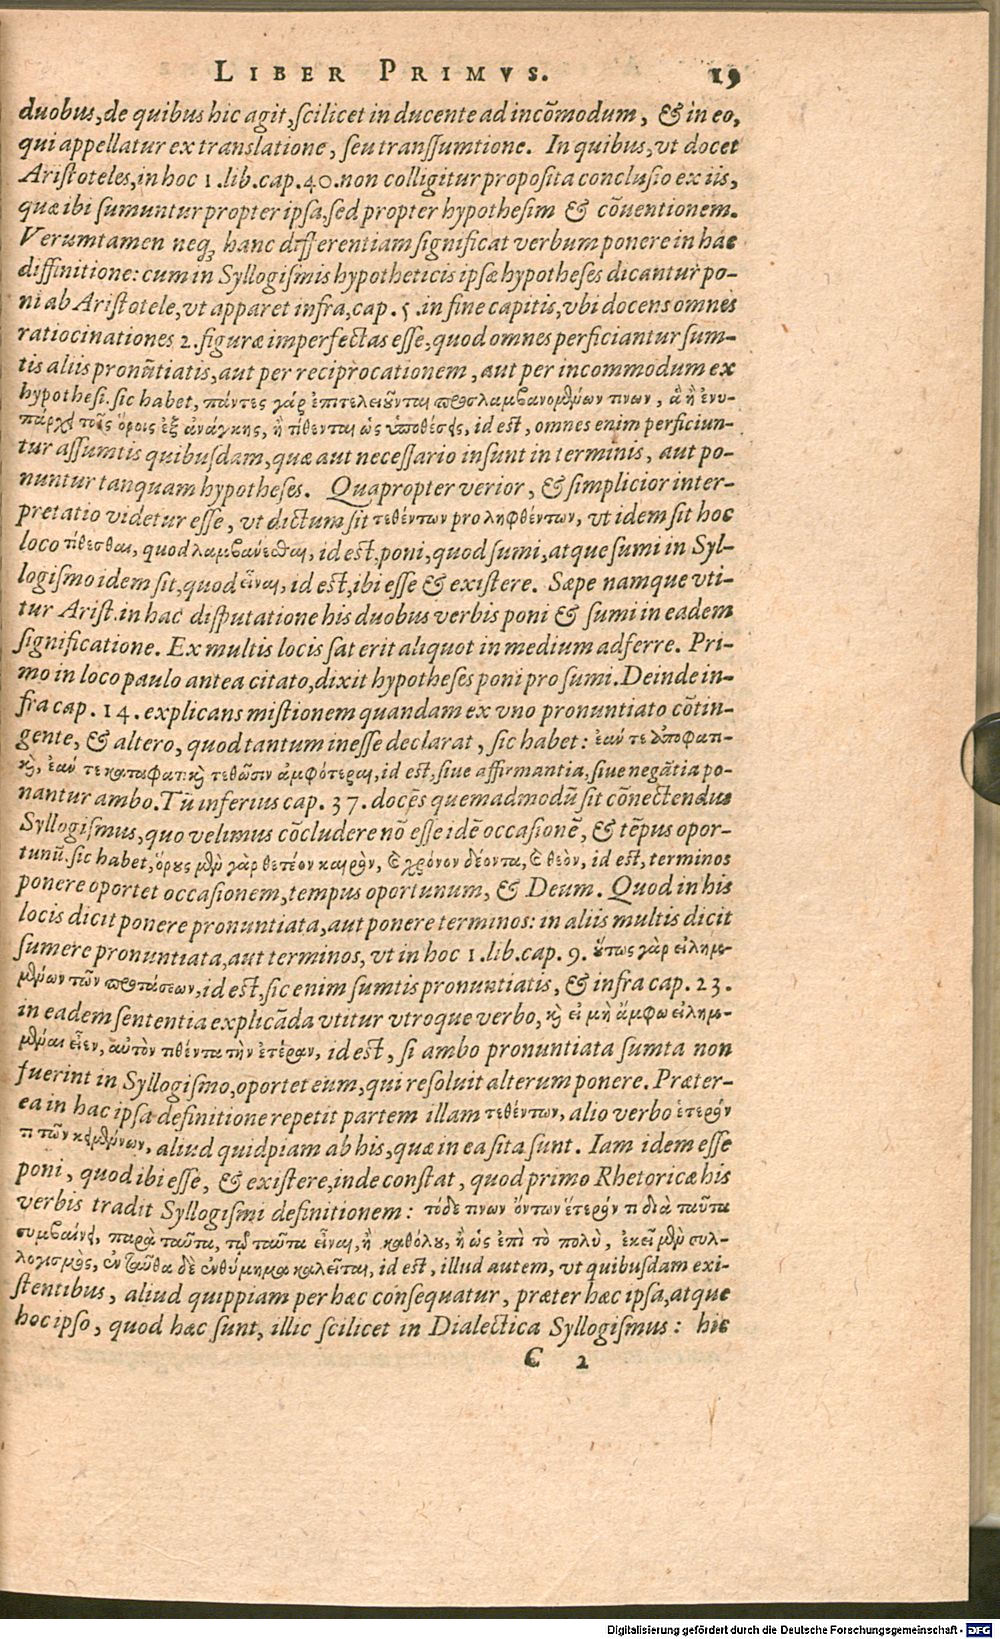 LIBER PRIMVS. 19
duobus, de quibus hic agit, scilicet in ducente ad incõmodum, & in eo,
qui appellatur ex translatione, seu transsumtione. In quibus, vt docet
Aristoteles, in hoc 1. lib. cap. 40. non colligitur proposita conclusio ex iis,
quæ ibi sumuntur propter ipsa, sed propter hypothesim & cõuentionem.
Verumtamen neq; hanc differentiam significat verbum ponere in hac
diffinitione: cum in Syllogismis hypotheticis ipsæ hypotheses dicantur po-
ni ab Aristotele, vt apparet infra, cap. 5. in fine capitis, vbi docens omnes
ratiocinationes 2. figuræ imperfectas esse, quod omnes perficiantur sum-
tis aliis pronũtiatis, aut per reciprocationem, aut per incommodum ex
hypothesi. sic habet, πάντες γὰρ ἐπιτελειοῦνται προσλαμβανομένων τινων, ἃ ἢ ἐνυ-
πάρχει τοῖς ὅροις ἐξ ἀνάγκης, ἢ τίθενται ὡς ὑποθέσεις, id est, omnes enim perficiun-
tur assumtis quibusdam, quæ aut necessario insunt in terminis, aut po-
nuntur tanquam hypotheses. Quapropter verior, & simplicior inter-
pretatio videtur esse, vt dictum sit τεθέντων pro ληφθέντων, vt idem sit hoc
loco τίθεσθαι, quod λαμβάνεσθαι, id est, poni, quod sumi, atque sumi in Syl-
logismo idem sit, quod εἶναι, id est, ibi esse & existere. Sæpe namque vti-
tur Arist. in hac disputatione his duobus verbis poni & sumi in eadem
significatione. Ex multis locis sat erit aliquot in medium adferre. Pri-
mo in loco paulo antea citato, dixit hypotheses poni pro sumi. Deinde in-
fra cap. 14. explicans mistionem quandam ex vno pronuntiato cõtin-
gente, & altero, quod tantum inesse declarat, sic habet: ἐάν τε ἀποφατι-
καὶ, ἐάν τε καταφατικαὶ τεθῶσιν ἀμφότεραι, id est, siue affirmantia, siue negãtia po-
nantur ambo. Tũ inferius cap. 37. docẽs quemadmodũ sit cõnectendus
Syllogismus, quo velimus cõcludere nõ esse idẽ occasionẽ, & tẽpus opor-
tunũ. sic habet, ὅρους μὲν γὰρ θετέον καιρὸν, καὶ χρόνον δέοντα, καὶ θεὸν, id est, terminos
ponere oportet occasionem, tempus oportunum, & Deum. Quod in his
locis dicit ponere pronuntiata, aut ponere terminos: in aliis multis dicit
sumere pronuntiata, aut terminos, vt in hoc 1. lib. cap. 9. οὕτως γὰρ εἰλημ-
μένων τῶν προτάσεων, id est, sic enim sumtis pronuntiatis, & infra cap. 23.
in eadem sententia explicãda vtitur vtroque verbo, καὶ εἰ μὴ ἄμφω εἰλημ-
μέναι εἶεν, αὐτὸν τιθέντα τὴν ἑτέραν, id est, si ambo pronuntiata sumta non
fuerint in Syllogismo, oportet eum, qui resoluit alterum ponere. Præter-
ea in hac ipsa definitione repetit partem illam τεθέντων, alio verbo ἕτερόν
τι τῶν κειμένων, aliud quidpiam ab his, quæ in ea sita sunt. Iam idem esse
poni, quod ibi esse, & existere, inde constat, quod primo Rhetoricæ his
verbis tradit Syllogismi definitionem: τόδε τινων ὄντων ἕτερόν τι διὰ ταῦτα
συμβαίνει, παρὰ ταῦτα, τῷ ταῦτα εἶναι, ἢ καθόλου, ἢ ὡς ἐπὶ τὸ πολὺ, ἐκεῖ μὲν συλ-
λογισμὸς, ἐνταῦθα δὲ ἐνθύμημα καλεῖται, id est, illud autem, vt quibusdam exi-
stentibus, aliud quippiam per hæc consequatur, præter hæc ipsa, atque
hoc ipso, quod hæc sunt, illic scilicet in Dialectica Syllogismus: hic
C 2
Digitalisierung gefördert durch die Deutsche Forschungsgemeinschaft - DFG